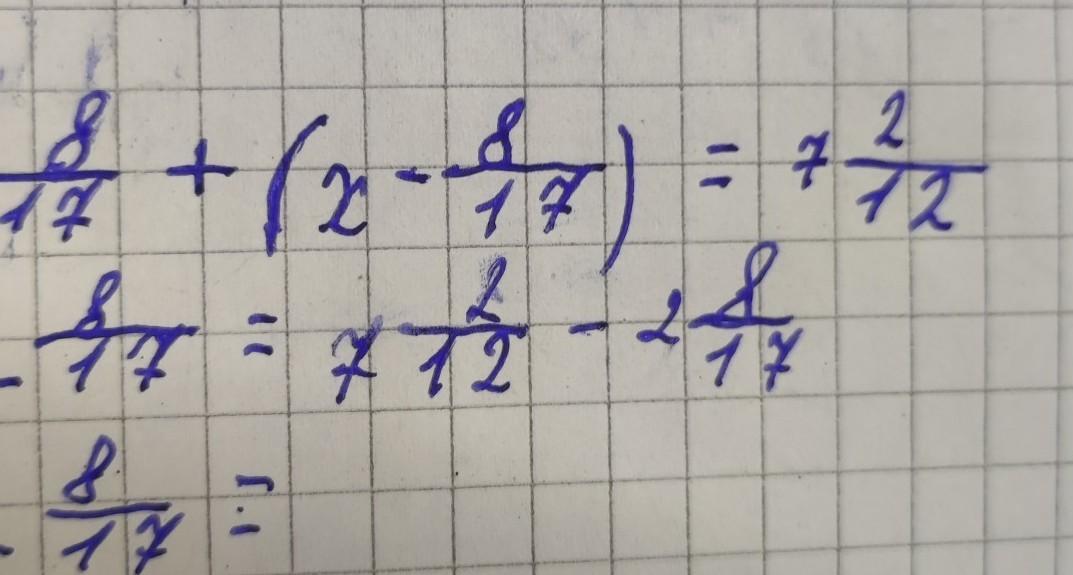 8/17 + (x - 8/17) = 7 2/12
- 8/17 = 7 2/12 - 2 8/17
- 8/17 =